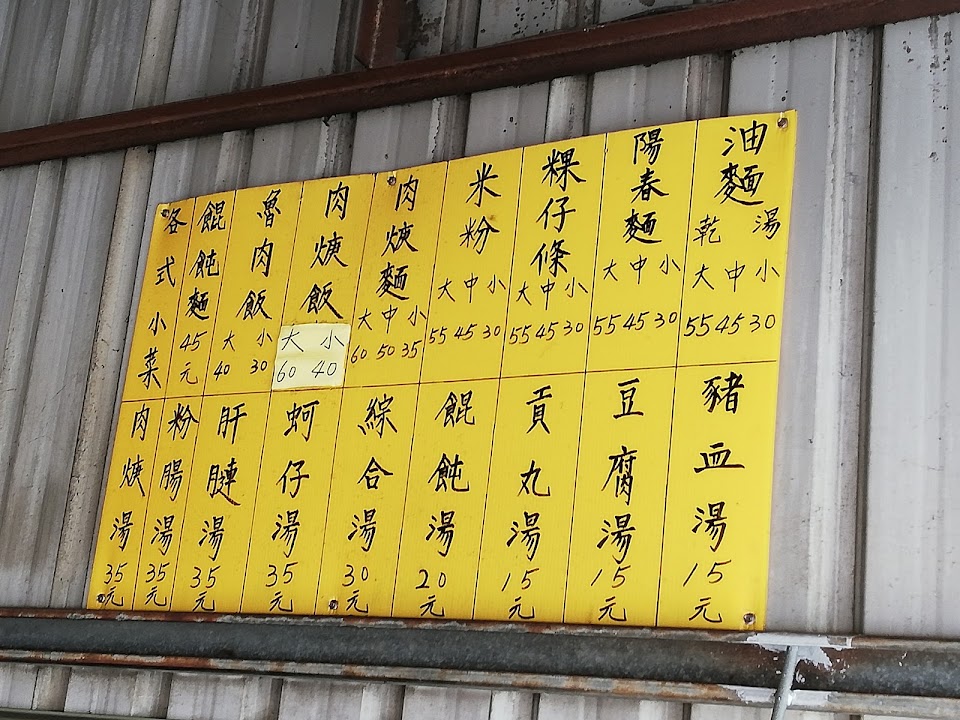 油麵
乾 湯
大 中 小
55 45 30
陽春麵
大 中 小
55 45 30
粿仔條
大 中 小
55 45 30
米粉
大 中 小
55 45 30
肉焿麵
大 中 小
60 50 35
肉焿飯
大 小
60 40
魯肉飯
大 小
40 30
餛飩麵
45元
各式小菜
豬血湯
15元
豆腐湯
15元
貢丸湯
15元
餛飩湯
20元
綜合湯
30元
蚵仔湯
35元
肝腱湯
35元
粉腸湯
35元
肉焿湯
35元